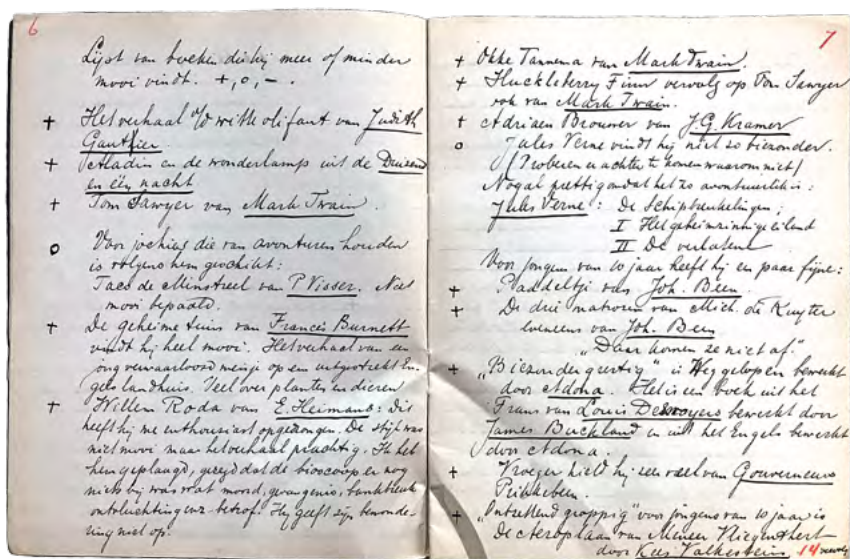 6
Lijst van boeken die hij meer of minder
mooi vindt. +, o, − .
+ Het verhaal v/d witte olifant van Judith
Gauthier.
+ Aladin en de wonderlamp uit de Duizend
en één nacht
+ Tom Sawyer van Mark Twain.
o Voor jochies die van avonturen houden
is volgens hem geschikt:
Taco de Minstreel van P Visser. Niet
mooi bepaald.
+ De geheime tuin van Francis Burnett
vindt hij heel mooi. Het verhaal van een
ong verwaarloosd meisje op een uitgestrekt En-
gels landhuis. Veel over planten en dieren
+ Willem Roda van E. Heimans: dit
heeft hij me enthousiast opgedrongen. De stijl was
niet mooi maar het verhaal prachtig. Ik heb
hem geplaagd, gezegd dat de bioscoop er nog
niets bij was wat moord, gevangenis, bankbreuk
ontvluchting enz. betrof. Hij geeft zijn bewonde-
ring niet op.
7
+ Okke Tannema van Mark Twain.
+ Huckleberry Finn vervolg op Tom Sawyer
ook van Mark Twain.
+ Adriaen Brouwer van J.G. Kramer
o Jules Verne vindt hij niet zo biezonder.
(Proberen er achter te komen waarom niet)
Nogal prettig omdat het zo avontuurlijk is:
Jules Verne: De Schipbreukelingen;
I Het geheimzinnige eiland
II De verlatene
Voor jongens van 10 jaar heeft hij een paar fijne:
+ Paddeltje van Joh. Been
+ De drie matrozen van Mich. de Ruyter
eveneens van Joh. Been
„Daar komen ze niet af."
+ „Biezonder gustig" is Weggelopen bewerkt
door Adona. Het is een boek uit het
Frans van Louis Desnoyers bewerkt door
James Buckland en uit het Engels bewerkt
door Adona.
+ Vroeger hield hij veel van Gouverneurs
Prikkebeen.
+ „Ontzettend grappig" voor jongens van 10 jaar is
De Aeroplaan van Meneer Vliegenthert
door Kees Valkestein. 14